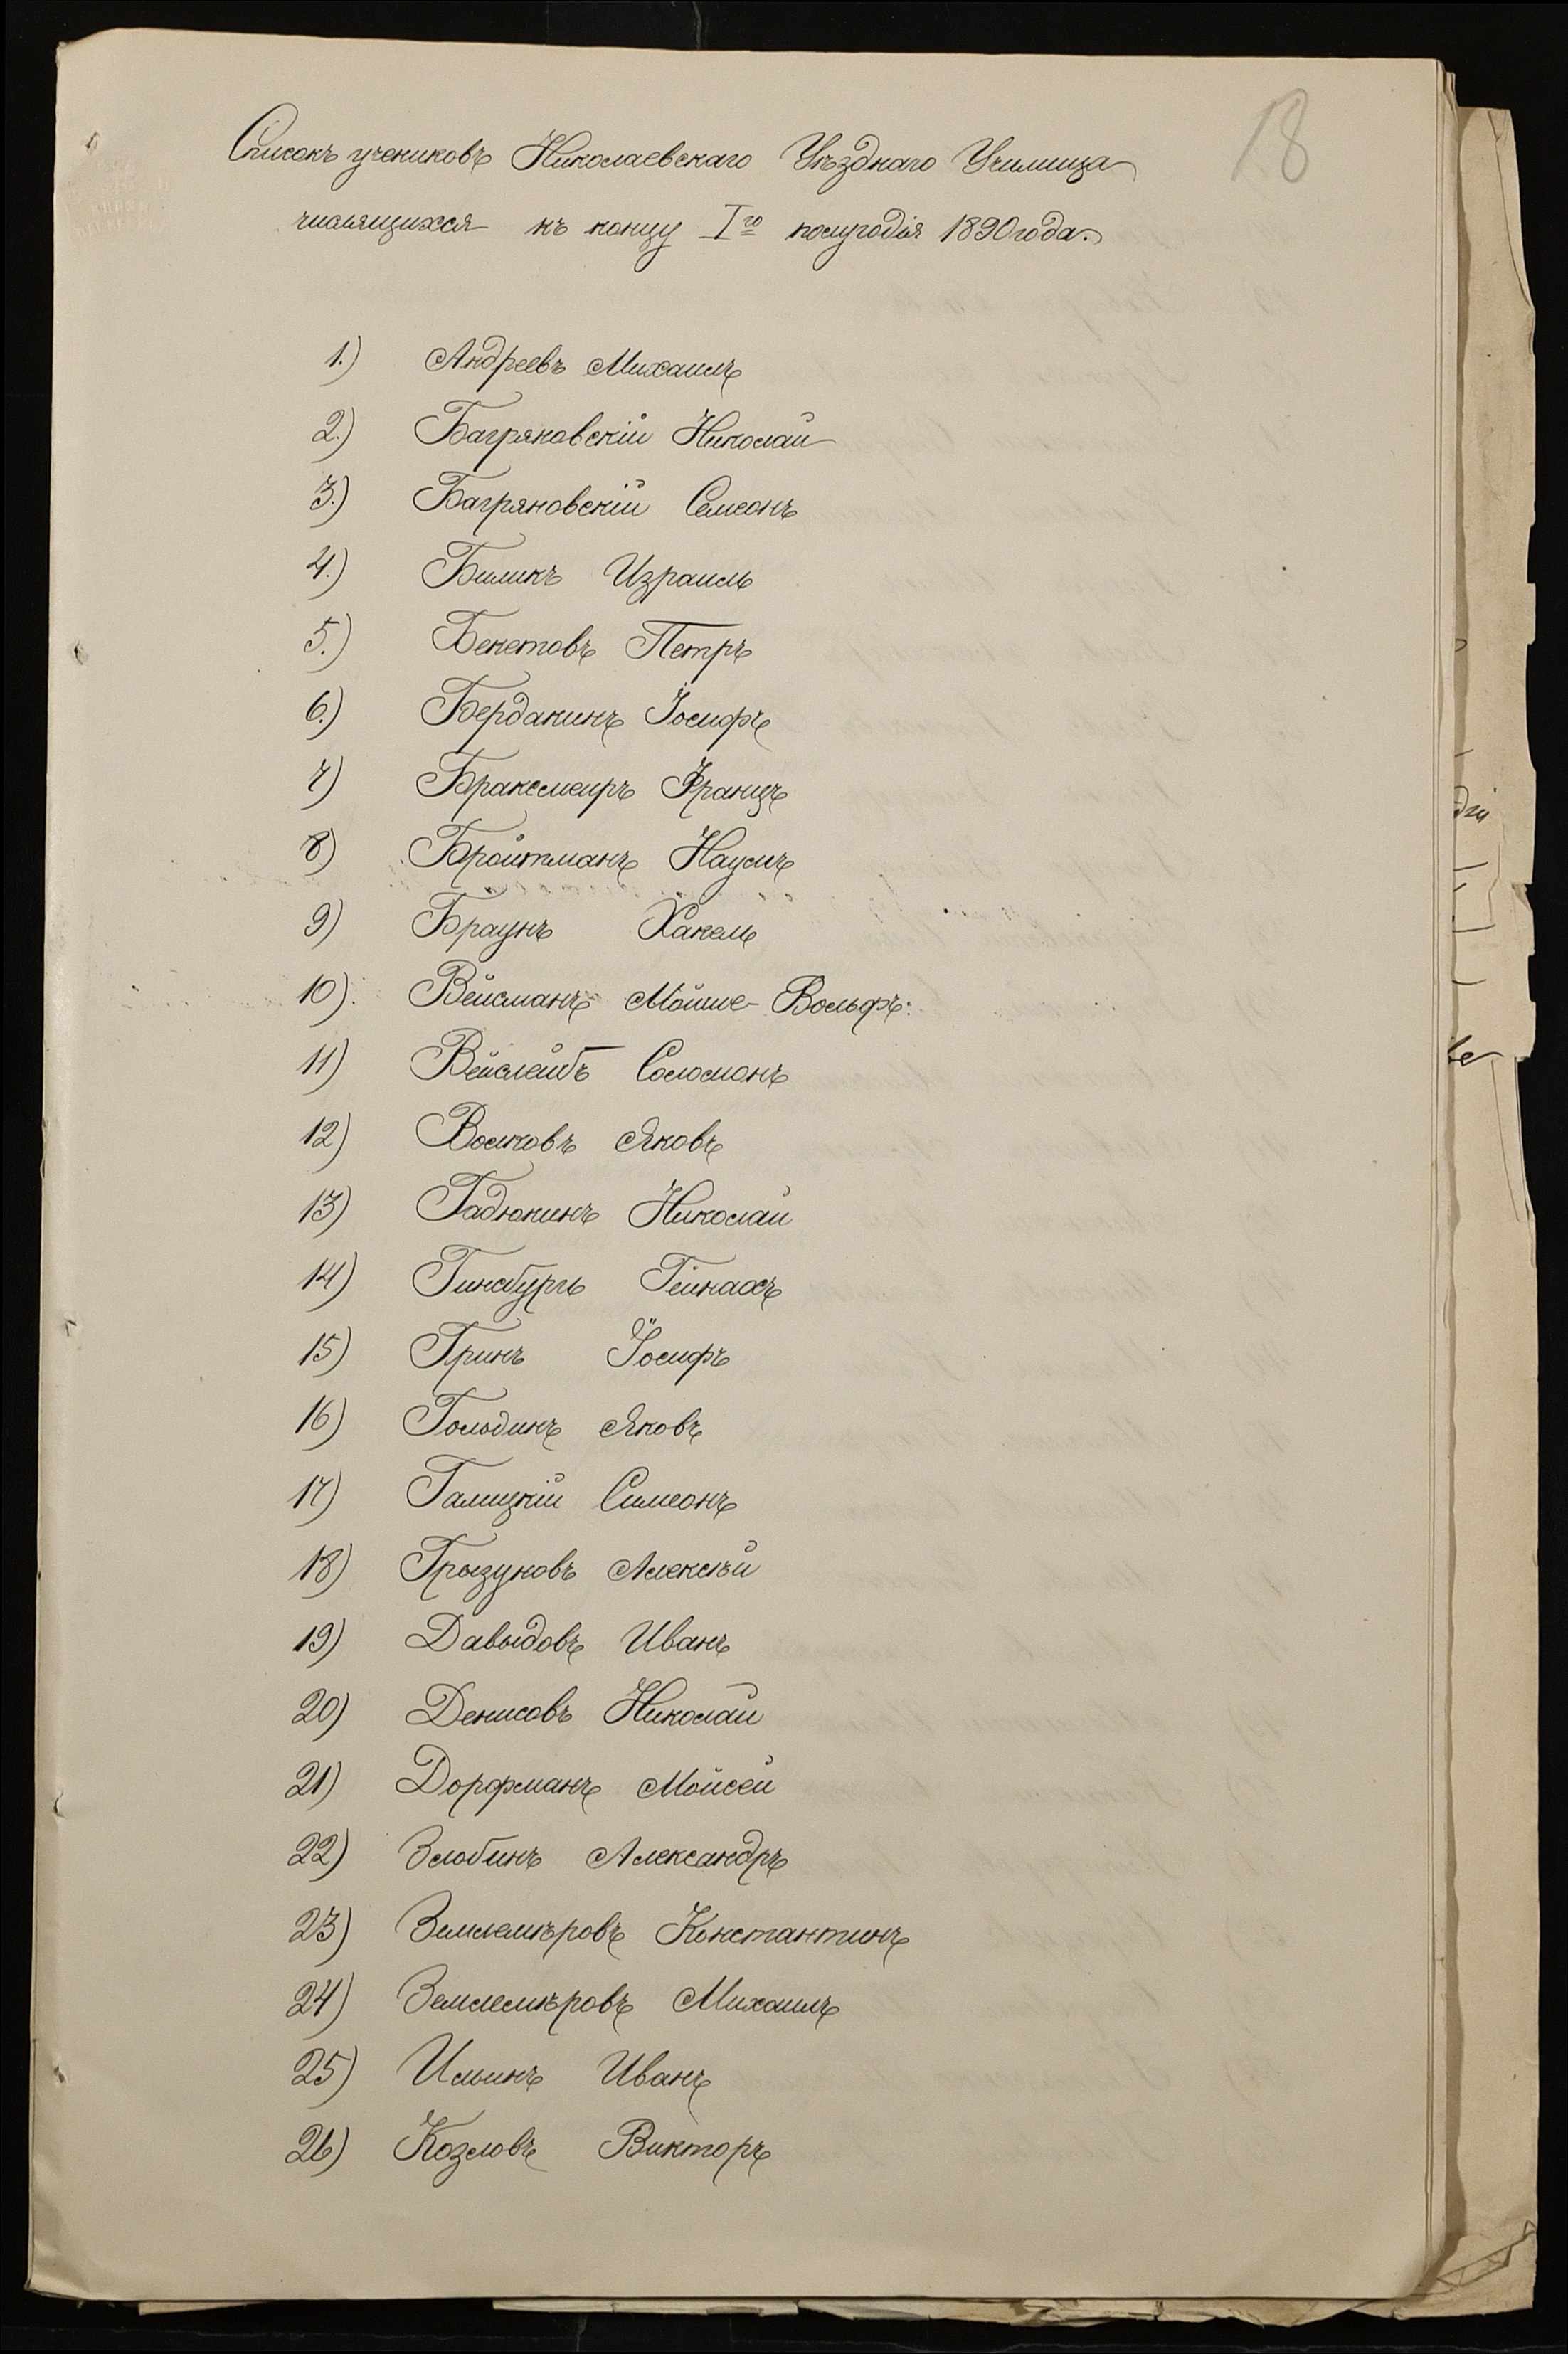 18
Списокъ учениковъ Николаевскаго Уѣзднаго Училища
числящихся къ концу Iго полугодія 1890 года.
1.) Андреевъ Михаилъ
2.) Багряновскій Николай
3.) Багряновскій Семеонъ
4.) Биликъ Израиль
5.) Бекетовъ Петръ
6.) Бердакинъ Іосифъ
7) Браксмеиръ Францъ
8) Бройтманъ Наумъ
9) Браунъ Хакель
10). Вейсманъ Мойше-Вольфъ.
11) Вейслейбъ Соломонъ
12) Волковъ Яковъ
13) Гадюкинъ Николай
14) Гинсбургъ Гейнахъ
15) Гринъ Іосифъ
16) Гольдинъ Яковъ
17) Галицкій Симеонъ
18) Грызуновъ Алексѣй
19) Давыдовъ Иванъ
20) Денисовъ Николай
21) Дорфманъ Мойсей
22) Злобинъ Александръ
23) Землемѣровъ Константинъ
24) Землемѣровъ Михаилъ
25) Ильинъ Иванъ
26) Козловъ Викторъ